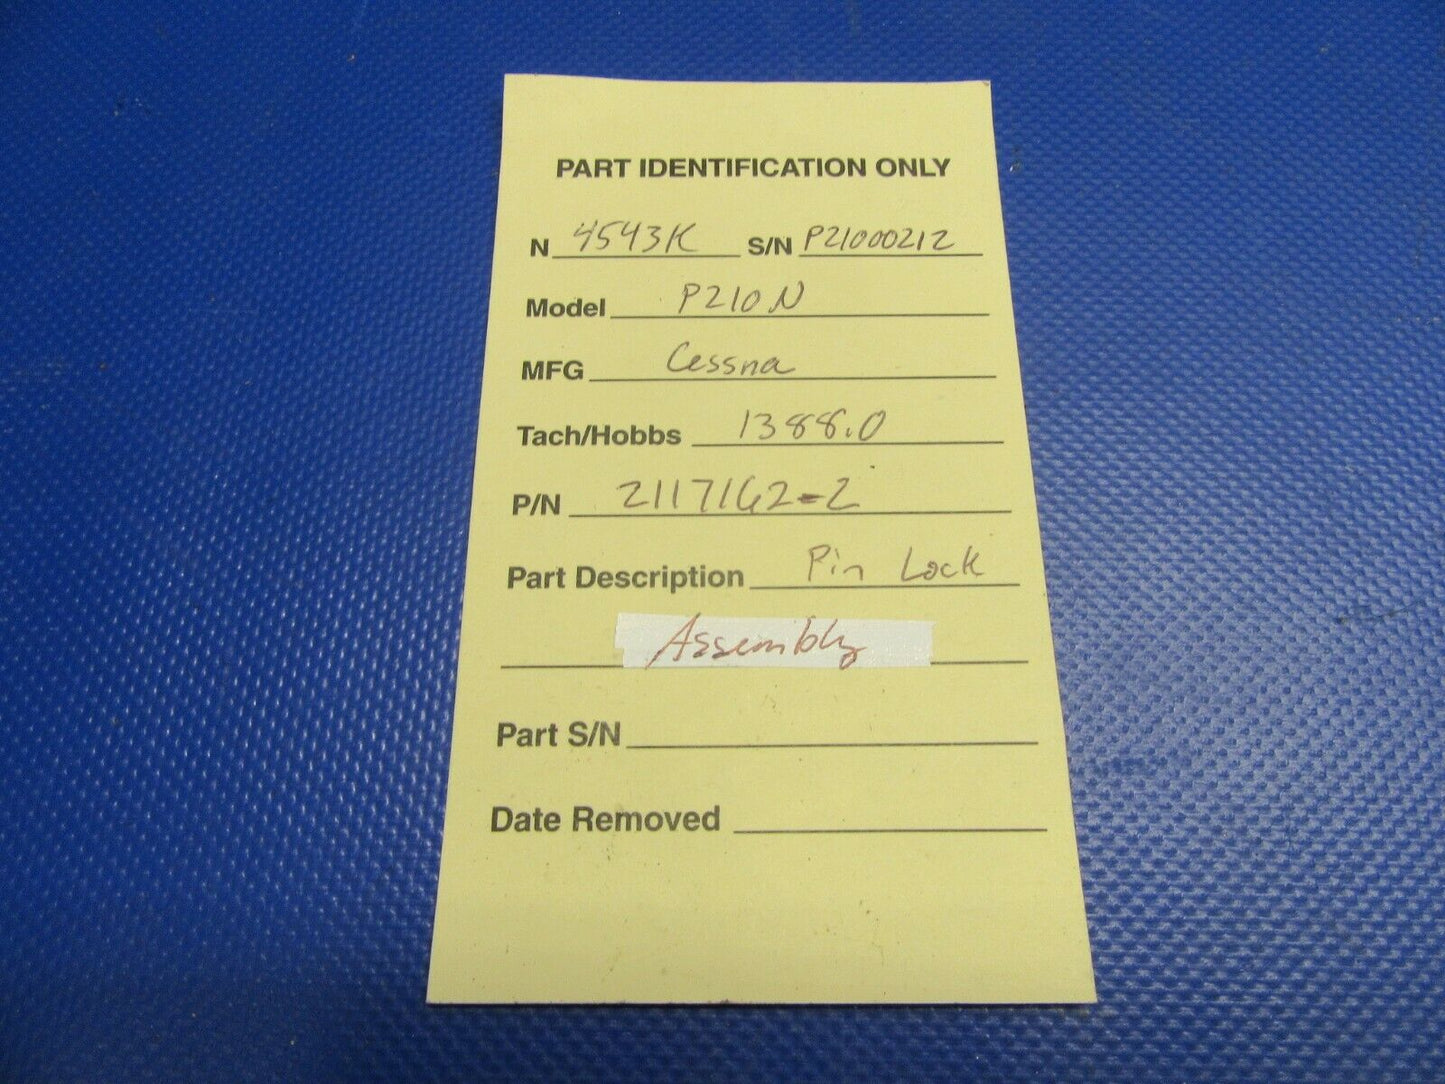 PART IDENTIFICATION ONLY
N 4543K S/N P21000212
Model P210N
MFG Cessna
Tach/Hobbs 1388.0
P/N 2117162-2
Part Description Pin Lock
Assembly
Part S/N
Date Removed